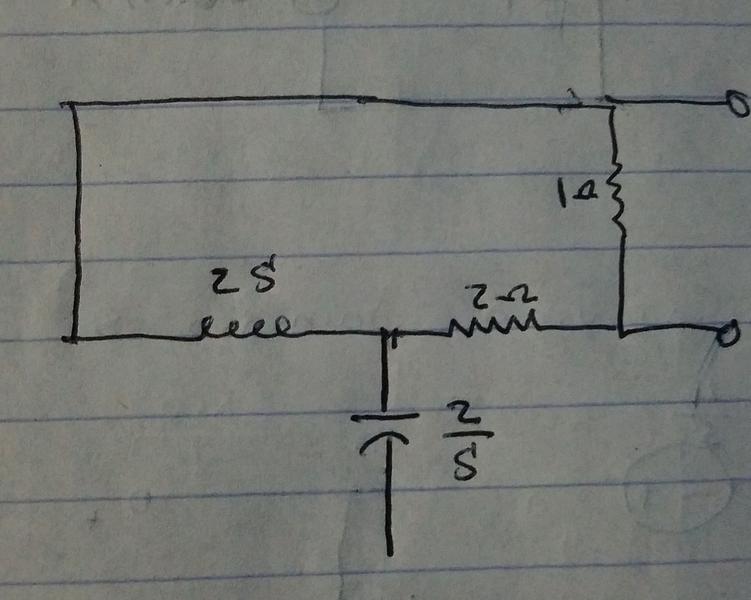 1Ω
2S
2Ω
2
S